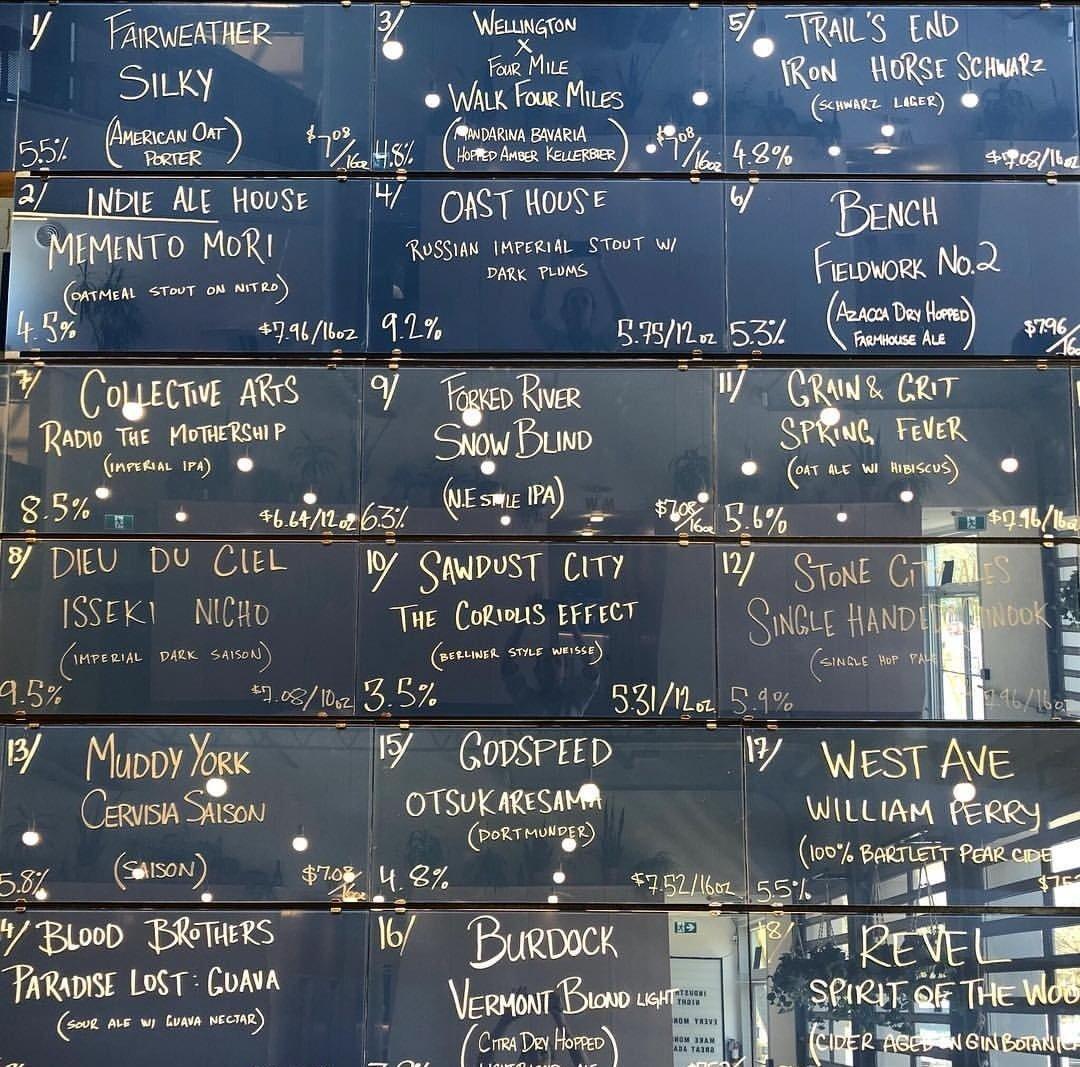 1/ FAIRWEATHER
SILKY
(AMERICAN OAT
PORTER)
5.5% $7.08/16oz
2/ INDIE ALE HOUSE
MEMENTO MORI
(OATMEAL STOUT ON NITRO)
4.5% $7.96/16oz
3/ WELLINGTON
X
FOUR MILE
WALK FOUR MILES
(MANDARINA BAVARIA
HOPPED AMBER KELLERBIER)
4.8% $7.08/16oz
4/ OAST HOUSE
RUSSIAN IMPERIAL STOUT W/
DARK PLUMS
9.2% 5.75/12oz
5/ TRAIL'S END
IRON HORSE SCHWARZ
(SCHWARZ LAGER)
4.8% $7.08/16oz
6/ BENCH
FIELDWORK NO.2
(AZACCA DRY HOPPED
FARMHOUSE ALE)
5.3% $7.96/16oz
7/ COLLECTIVE ARTS
RADIO THE MOTHERSHIP
(IMPERIAL IPA)
8.5% $6.64/12oz
8/ DIEU DU CIEL
ISSEKI NICHO
(IMPERIAL DARK SAISON)
9.5% $7.08/10oz
9/ FORKED RIVER
SNOW BLIND
(N.E STYLE IPA)
6.3% $7.08/16oz
10/ SAWDUST CITY
THE CORIOLIS EFFECT
(BERLINER STYLE WEISSE)
3.5% 5.31/12oz
11/ GRAIN & GRIT
SPRING FEVER
(OAT ALE W/ HIBISCUS)
5.6% $7.96/16oz
12/ STONE CITY ALES
SINGLE HANDED CHINOOK
(SINGLE HOP PALE
5.9% 7.96/16oz
13/ MUDDY YORK
CERVISIA SAISON
(SAISON)
5.8% $7.08/16oz
14/ BLOOD BROTHERS
PARADISE LOST: GUAVA
(SOUR ALE W/ GUAVA NECTAR)
15/ GODSPEED
OTSUKARESAMA
(DORTMUNDER)
4.8% $7.52/16oz
16/ BURDOCK
VERMONT BLOND LIGHT
(CITRA DRY HOPPED
17/ WEST AVE
WILLIAM PERRY
(100% BARTLETT PEAR CIDE
5.5%
18/ REVEL
SPIRIT OF THE WOO
(CIDER AGED ON GIN BOTANICA
INDUSTRY
NIGHT
EVERY MON
MAKE MON
GREAT AGA